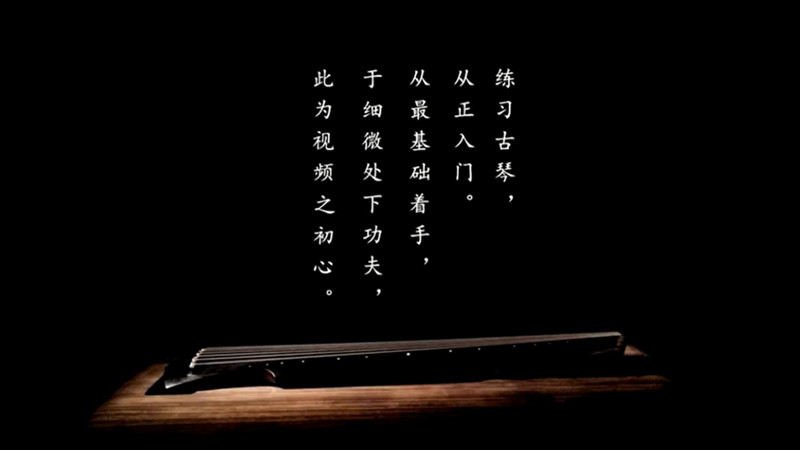 练习古琴，
从正入门。
从最基础着手，
于细微处下功夫，
此为视频之初心。